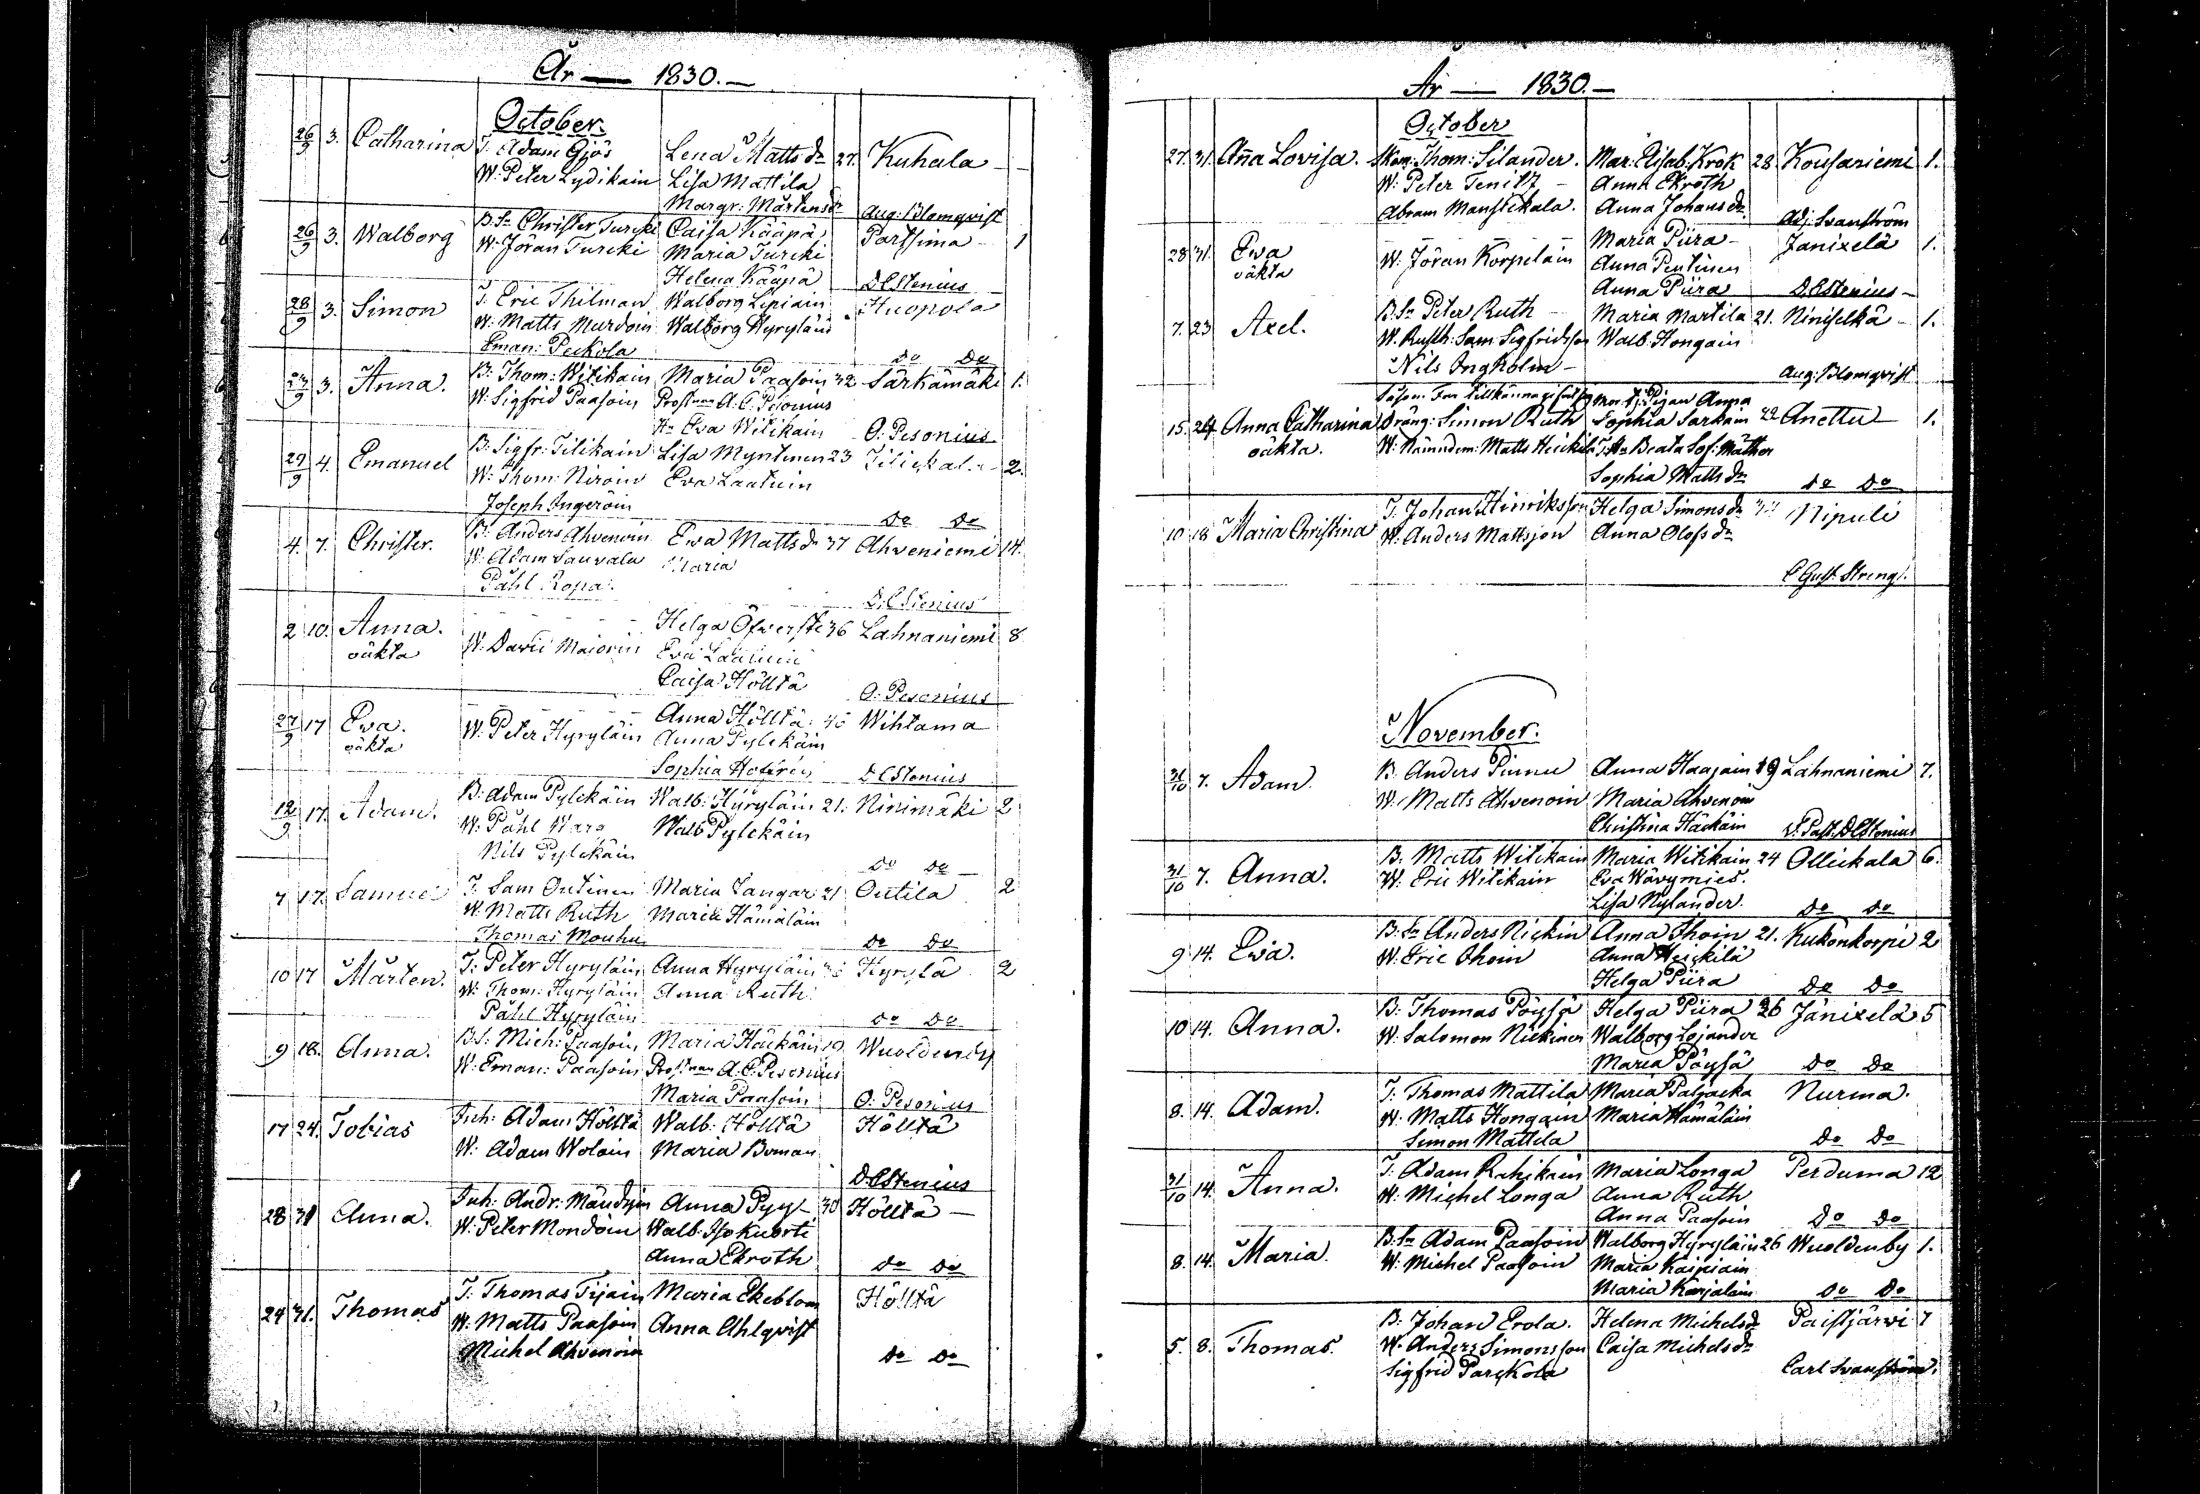 År — 1830. —
October.
26/9 3. Catharina T. Adam Gjös Lena Matts dr 27. Kuhala —
W: Peter Lydikain Lisa Mattila
Margr: Mårtensdr Aug: Blomqvist
26/9 3. Walborg B. Sn Christer Turcki Caisa Kääpä Partsima 1
W: Jöran Turcki Maria Turcki
Helena Kääpä D. Estenius
28/9 3. Simon T. Eric Thilman Walborg Lipiain Huopola
W: Matts Murdoin Walborg Hyryläin
Eman: Peckola Do Do
3. Anna. B: Thom: Witikain Maria Paasoin 32 Särkämäki 1.
W: Sigfrid Paasoin Prostinnan A. C. Pesonius
Hu Eva Witikain O. Pesonius
29/9 4. Emanuel B: Sigfr: Tilikain Lisa Myntinen 23 2.
W: Thom: Niroin Eva Laatuin
Joseph Ingeroin Do Do
4. 7. Christer. B: Anders Ahvenoin Ewa Matts dr 37 Ahveniemi 14.
W: Adam Sauvala Maria
Påhl Ropa. D. Estenius
2 10. Anna. Helga Öfwerste 36 Lahnaniemi 8
oäkta W: David Maiorin Eva Laatuin
Caisa Höltä O: Pesonius
27/9 17 Ewa. Anna Hölltä Wihtama
oäkta W: Peter Hyryläin Anna Pylckäin
Sophia D. Estenius
12/9 17. Adam. B: Adam Pylckäin Walb: Hyryläin 21. Ninimäki 2
W: Påhl Warg Walb Pylckäin
Nils Pylckäin Do Do
7 17. Samuel T. Sam Outinen Maria Tangar 21 Outila 2
W. Matts Ruth Maria Hämäläin
Thomas Mouhu Do Do
10 17 Mårten. T: Peter Hyryläin Anna Hyryläin Hyrylä 2
W: Thom: Hyryläin Anna Ruth
Påhl Hyryläin Do Do
9 18. Anna. B S: Mich: Paasoin Maria Häckäin 19 Wuoldenby
W: Eman: Paasoin Prostinnan A. C. Pesonius
Maria Paasoin O: Pesonius
17 24. Tobias Inh: Adam Hölltä Walb: Hölltä Hölltä
W: Adam Wolain Maria Boman
D. Estenius
28 31 Anna. Inh: Andr: Mändyin Anna Pyy 30 Hölltä —
W: Peter Mondoin Walb: Isokuorti
Anna Ekroth Do Do
24 31. Thomas T: Thomas Tijain Maria Ekeblom Hölltä
W: Matts Paasoin Anna Ahlqvist
Michel Ahvenoin Do Do
År — 1830. —
October
27. 31. Anna Lovisa. Skom: Thom: Silander. Mar: Elisab: Krok 28 Kousaniemi 1.
W: Peter Tenitz Anna Ekroth
Abram Mansickala. Anna Johansdr Adj: Svanström
28 31. Ewa Maria Piira Janixelä 1.
oäkta W. Jöran Korpelain Anna Pentinen
Anna Piira D. Estenius —
7. 23 Axel. B. Sn Peter Ruth Maria Martila 21. Niniselkä 1.
W. Rusth: Sam: Sigfridsson Walb: Hongain
Nils Ingholm — Aug: Blomqvist
15. 24 Anna Catharina Dräng: Simon Ruth Sophia Sarkain 22 Anottu 1.
oäkta. W: Nämndem: Matts Heickilä Beata Sof: Mather
Sophia Matts dr Do Do
10 18 Maria Christina T. Johan Hinriksson Helga Simonsdr Nipuli
W. Anders Mattsson Anna Olofs dr
C Gust Streng.
November.
31/10 7. Adam. B. Anders Pinnu Anna Haajain 19 Lahnaniemi 7.
W. Matts Ahvenoin Maria Ahvenoin
Christina Häckäin V: Past: D. Estenius
31/10 7. Anna. B. Matts Witikain Maria Witikain 24 Ollickala 6.
W. Eric Witikain Eva Wävymies.
Lisa Nylander. Do Do
9 14. Ewa. B. Sn Anders Nickin Anna Ihoin 21. Kukonkorpi 2
W. Eric Ihoin Anna Heickilä
Helga Piira Do Do
10 14. Anna. B: Thomas Pöysä Helga Piira 26 Jänixelä 5
W. Salomon Nickinen Walborg Lojander
Maria Pöysä Do Do
8. 14. Adam. T: Thomas Mattila Maria Paljacka Nurma.
W. Matts Hongain Maria Hämäläin
Simon Mattila Do Do
31/10 14. Anna. T. Adam Rahikain Maria Longa Perduma 12
W: Michel Longa Anna Ruth
Anna Paasoin Do Do
8. 14. Maria. B. Sn Adam Paasoin Walborg Hyryläin 26 Wuoldenby 1.
W: Michel Paasoin Maria Kaipiain
Maria Karjalain Do Do
5. 8. Thomas. B. Johan Erola. Helena Michelsdr Paistjärwi 7
W. Anders Simonsson Caisa Michelsdr
Sigfrid Parckola Carl Svanström.